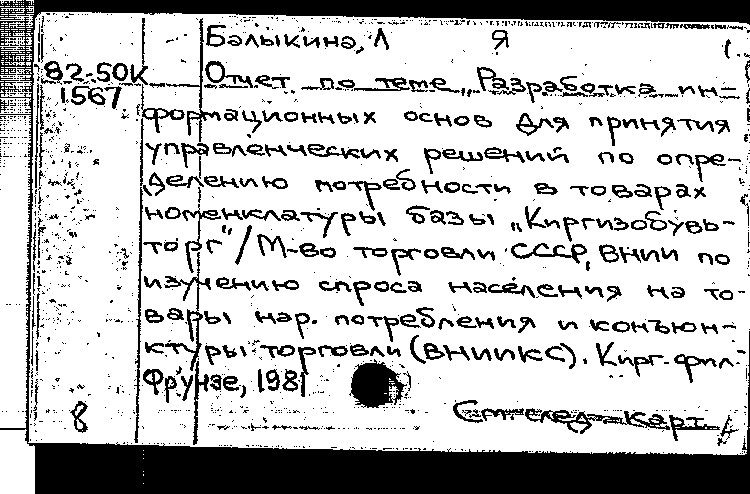 Балыкина, Л Я 1.
82-50К Отчет по теме „Разработка ин-
1567
формационных основ для принятия
управленческих решений по опре-
делению потребности в товарах
номенклатуры базы „Киргизобувь-
торг“/М-во торговли СССР, ВНИИ по
изучению спроса населения на то-
вары нар. потребления и конъюн-
ктуры торговли (ВНИИКС). Кирг. фил-
Фрунзе, 1981
8 См. след. карт.